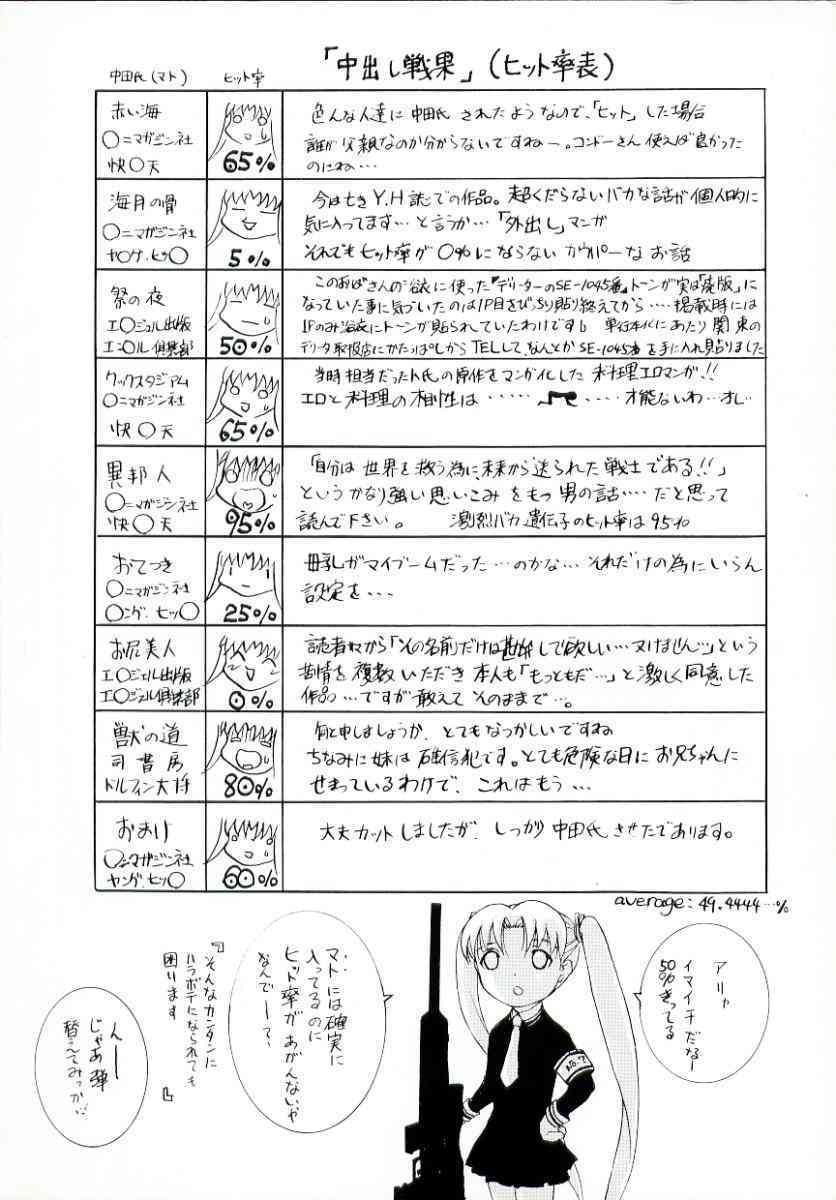 「中出し戦果」(ヒット率表)
中田氏(マト)
ヒット率
赤い海
〇ニマガジン社
快〇天
65%
色んな人達に中田氏されたようなので、「ヒット」した場合
誰が父親なのか分からないですねー。コンドーさん使えば良かった
のにね…
海月の骨
〇ニマガジン社
ヤ〇グ.ヒッ〇
5%
今は亡きY.H誌での作品。超くだらないバカな話が個人的に
気に入ってます…と言うか…「外出し」マンガ
それでもヒット率が0%にならない
なお話
祭の夜
エ〇ジェル出版
エ〇ジル倶楽部
50%
このおばさんの浴衣に使った『デリーターのSE-1045番』トーンが実は「廃版」に
なっていた事に気づいたのは1P目をびっちり貼り終えてから…掲載時には
1Pのみ浴衣にトーンが貼られていたわけです。単行本化にあたり関東の
デリータ取扱店にかたっぱしからTELして、なんとかSE-1045番を手に入れ貼りました
クックスタジアム
〇ニマガジン社
快〇天
65%
当時担当だったト氏の原作をマンガ化した料理エロマンガ!!
エロと料理の相性は……
……才能ないわ…オレ
異邦人
〇ニマガジン社
快〇天
95%
「自分は世界を救う為に未来から送られた戦士である!!」
というかなり強い思いこみをもつ男の話…だと思って
読んで下さい。 激烈バカ遺伝子のヒット率は95%
おてつき
〇ニマガジン社
〇ング.ヒッ〇
25%
母乳がマイブームだった…のかな…それだけの為にいらん
設定を…
お尻美人
エ〇ジェル出版
エ〇ジェル倶楽部
0%
読者様から「その名前だけは勘弁して欲しい…ヌけません…」という
苦情を複数いただき本人も「もっともだ…」と激しく同意した
作品…ですが敢えてそのままで…。
獣の道
司書房
ドルフィン大将
80%
何と申しましょうか、とてもなつかしいですね
ちなみに妹は確信犯です。とても危険な日にお兄ちゃんに
せまっているわけで、これはもう…
おまけ
〇ニマガジン社
ヤング.ヒッ〇
60%
大夫カットしましたが、しっかり中田氏させたであります。
average:49.4444…%
アリャ
イマイチだなー
50%きってる
マトには確実に
入ってるのに
ヒット率があがんないや
なんでー?
『そんなカンタンに
ハラボテになられても
困ります』
んー
じゃあ弾
替えてみっか…